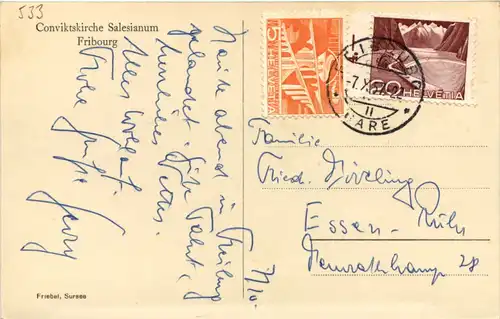 533
Conviktskirche Salesianum
Fribourg
Heute abend in Fribourg
gelandet. Gute Fahrt,
herrliches Wetter.
Alles wohlauf.
Frohe Grüße
Georg
7/10.
5
HELVETIA
20
HELVETIA
-7.X.
GARE
Familie
Fried.
Essen - Ruhr
28
Friebel, Sursee